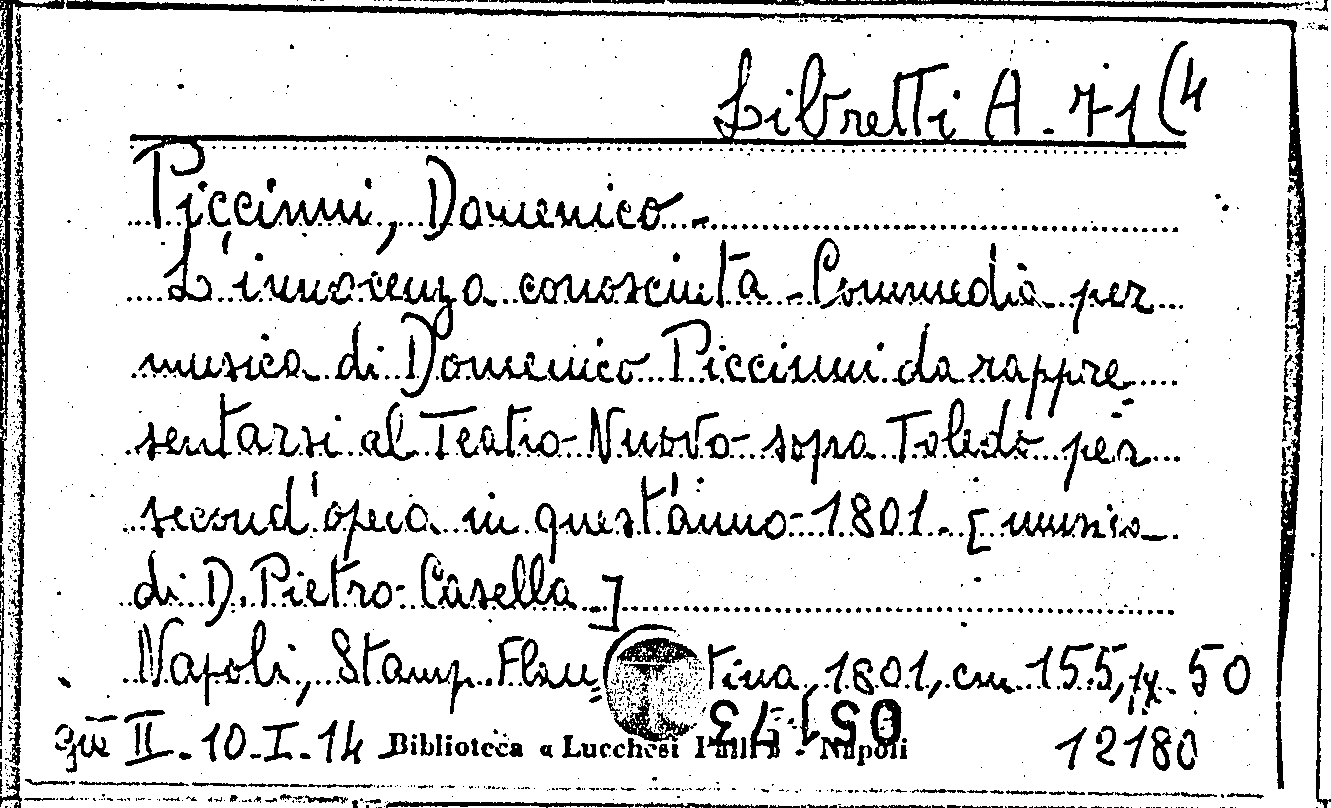 Libretti A. 71(4
Piccinni, Domenico -
L'innocenza conosciuta - Commedia per
musica di Domenico Piccinni da rappre
sentarsi al Teatro Nuovo sopra Toledo per
second'opera in quest'anno 1801. [musica
di D. Pietro Casella]
Napoli, Stamp. Flau=tina, 1801, cm 15.5, pp. 50
II - 10.I.14 Biblioteca « Lucchesi Palli » - Napoli 12180